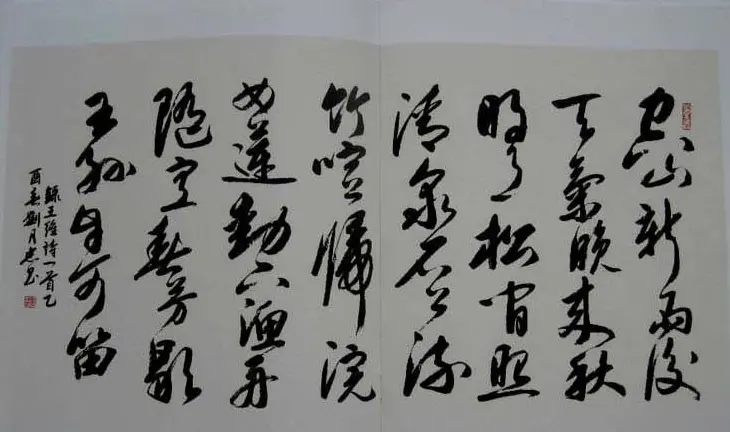 空山新雨後
天氣晚來秋
明月松間照
清泉石上流
竹喧歸浣
女蓮動下漁舟
隨意春芳歇
王孫自可留
錄王維詩一首乙
酉春劉月書